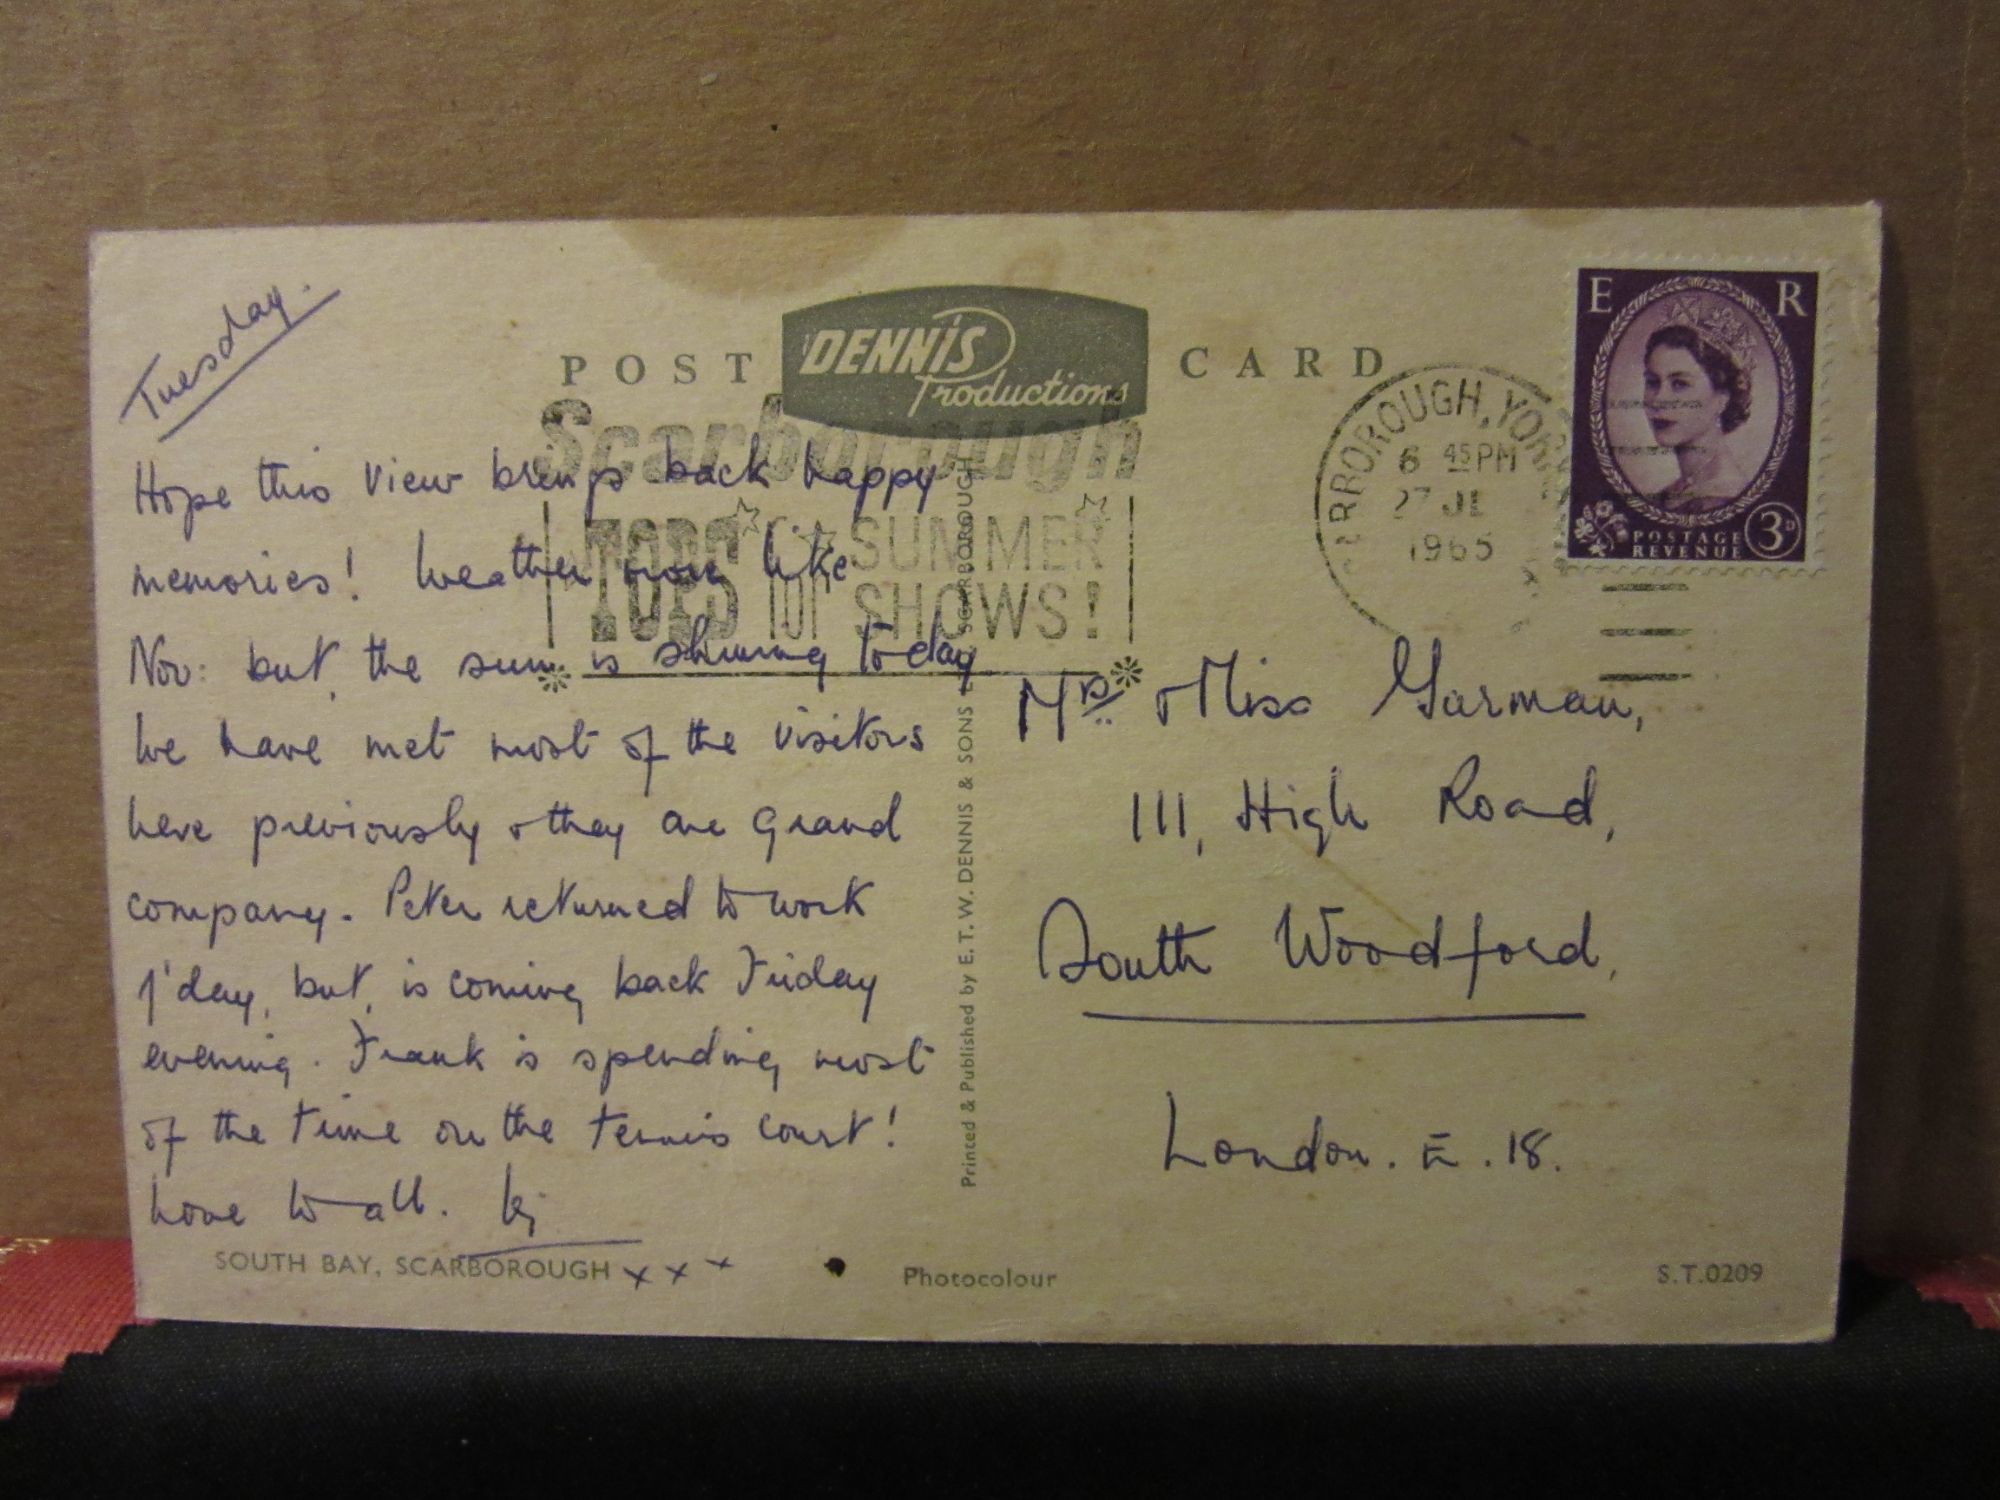 POST CARD
DENNIS
Productions
Scarborough
TOPS for SUMMER
SHOWS!
RBOROUGH, YOR
6 45PM
27 JL
1965
E R
POSTAGE
REVENUE
3D
Tuesday.
Hope this view brings back happy
memories! Weather more like
Nov: but, the sun is shining today
We have met most of the visitors
here previously & they are grand
company. Peter returned to work
T'day, but, is coming back Friday
evening. Frank is spending most
of the time on the tennis court!
Love to all.
x x x
Mrs & Miss Garman,
111, High Road,
South Woodford,
London. E. 18.
Printed & Published by E. T. W. DENNIS & SONS L SCARBOROUGH
SOUTH BAY, SCARBOROUGH
Photocolour
S.T.0209